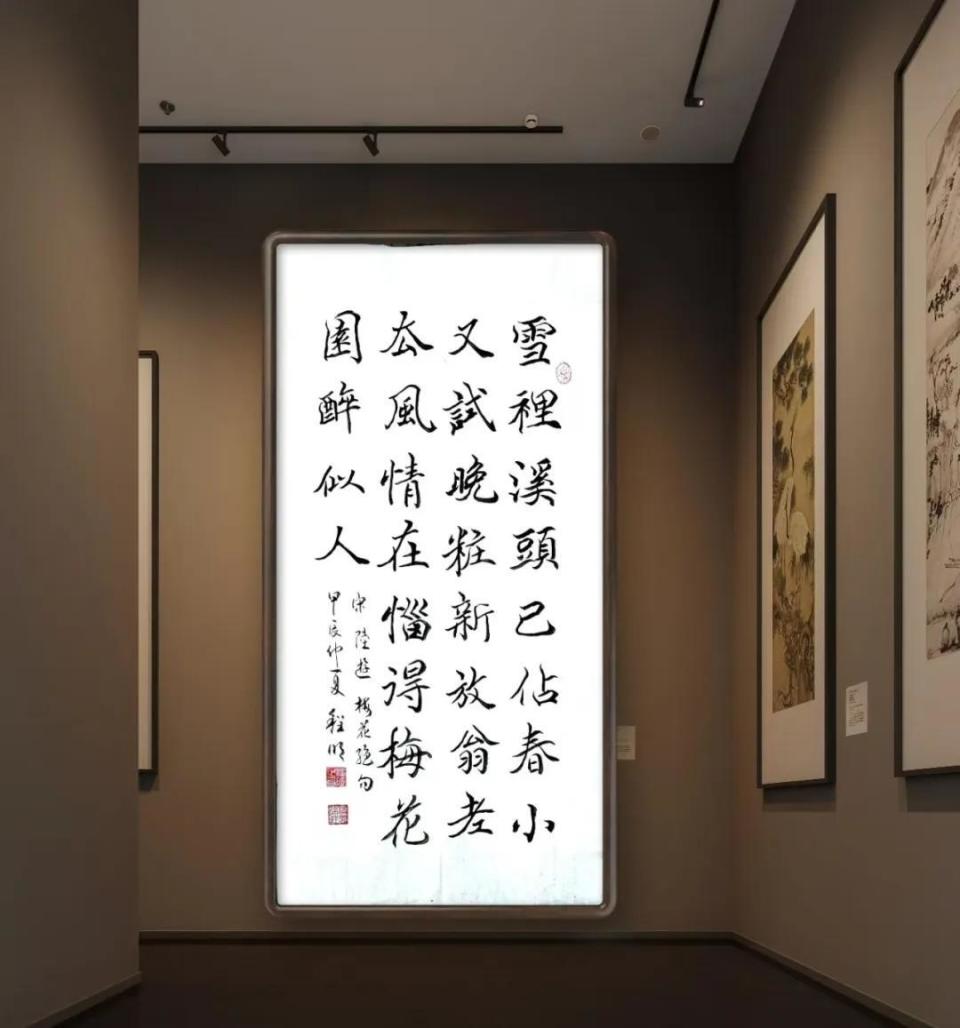 雪裡溪頭已佔春小
又試晚粧新放翁老
去風情在惱得梅花
園醉似人
宋陸遊梅花絕句
甲辰仲夏程明